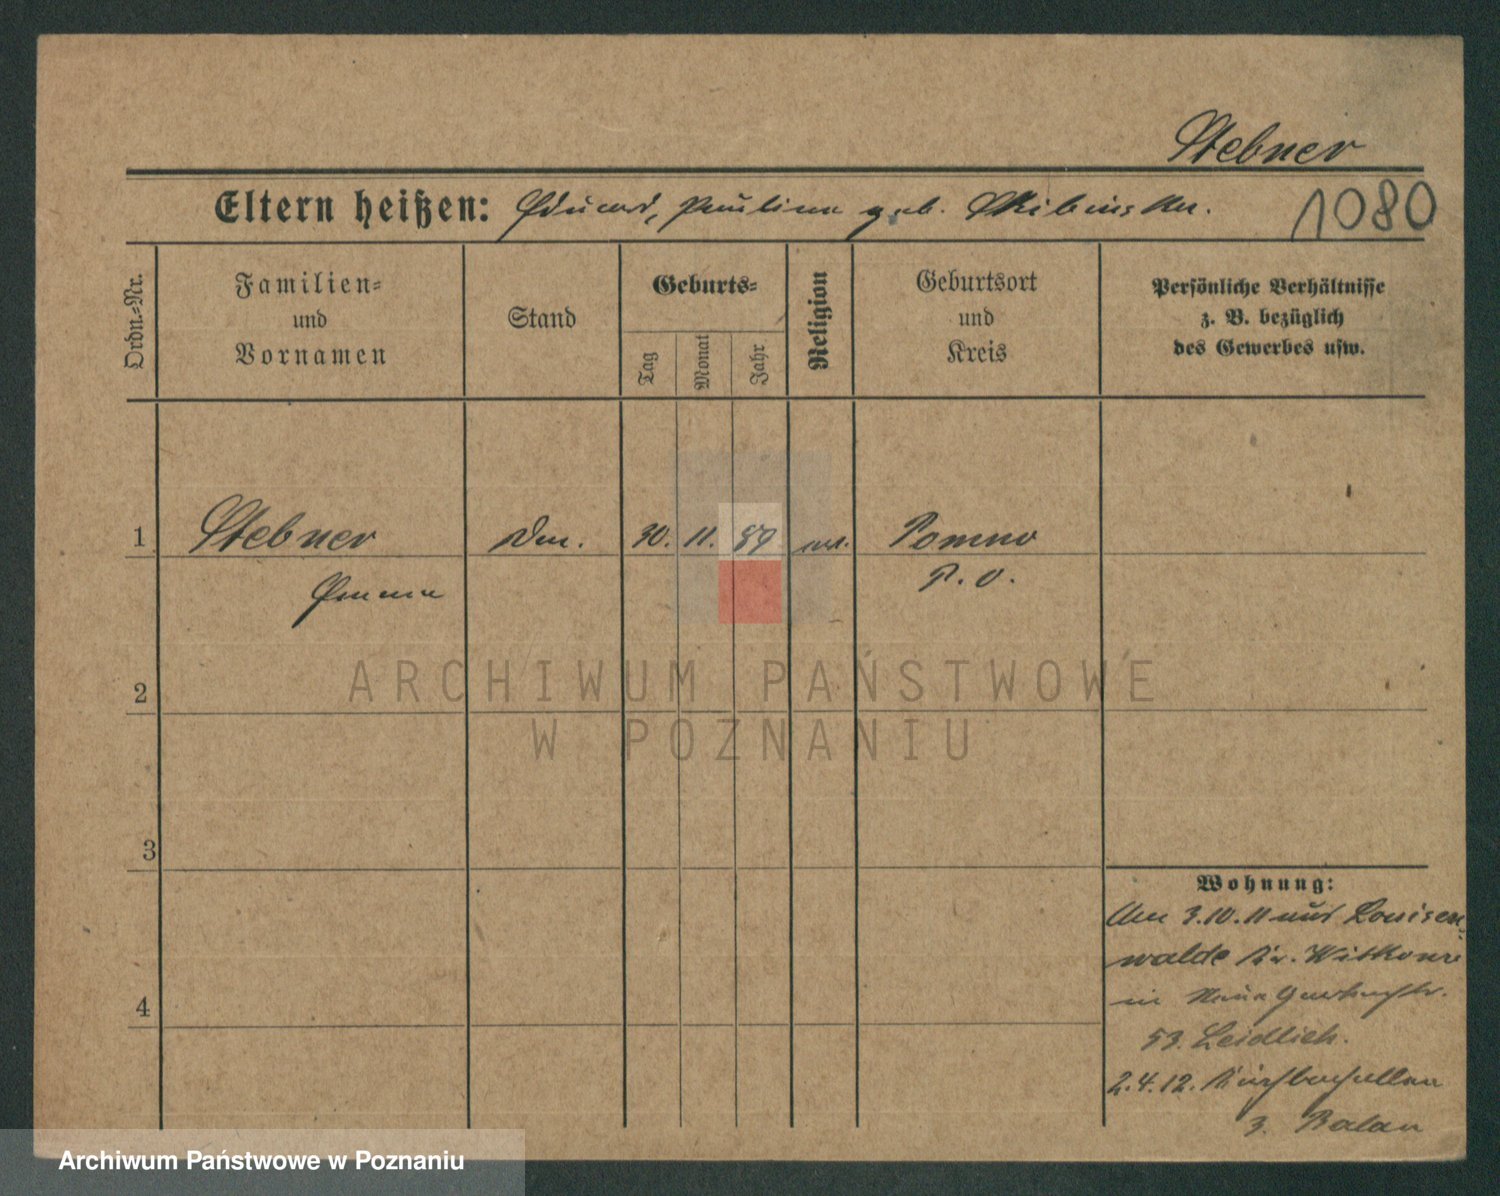 Stebner
Eltern heißen: Eduard, Pauline geb. Skibinska.
1080
Ordn.-Nr.
Familien-
und
Vornamen
Stand
Geburts-
Tag
Monat
Jahr
Religion
Geburtsort
und
Kreis
Persönliche Verhältnisse
z. B. bezüglich
des Gewerbes usw.
1 Stebner 30. 11. 89 ev. Pomno
Emma P. O.
ARCHIWUM PAŃSTWOWE
W POZNANIU
2
3
4
Wohnung:
Am 3.10.11 aus Louisen-
walde Kr. Witkowo
in Neue Gartenstr.
53. Leidlich.
2.4.12.
z. Balan
Archiwum Państwowe w Poznaniu